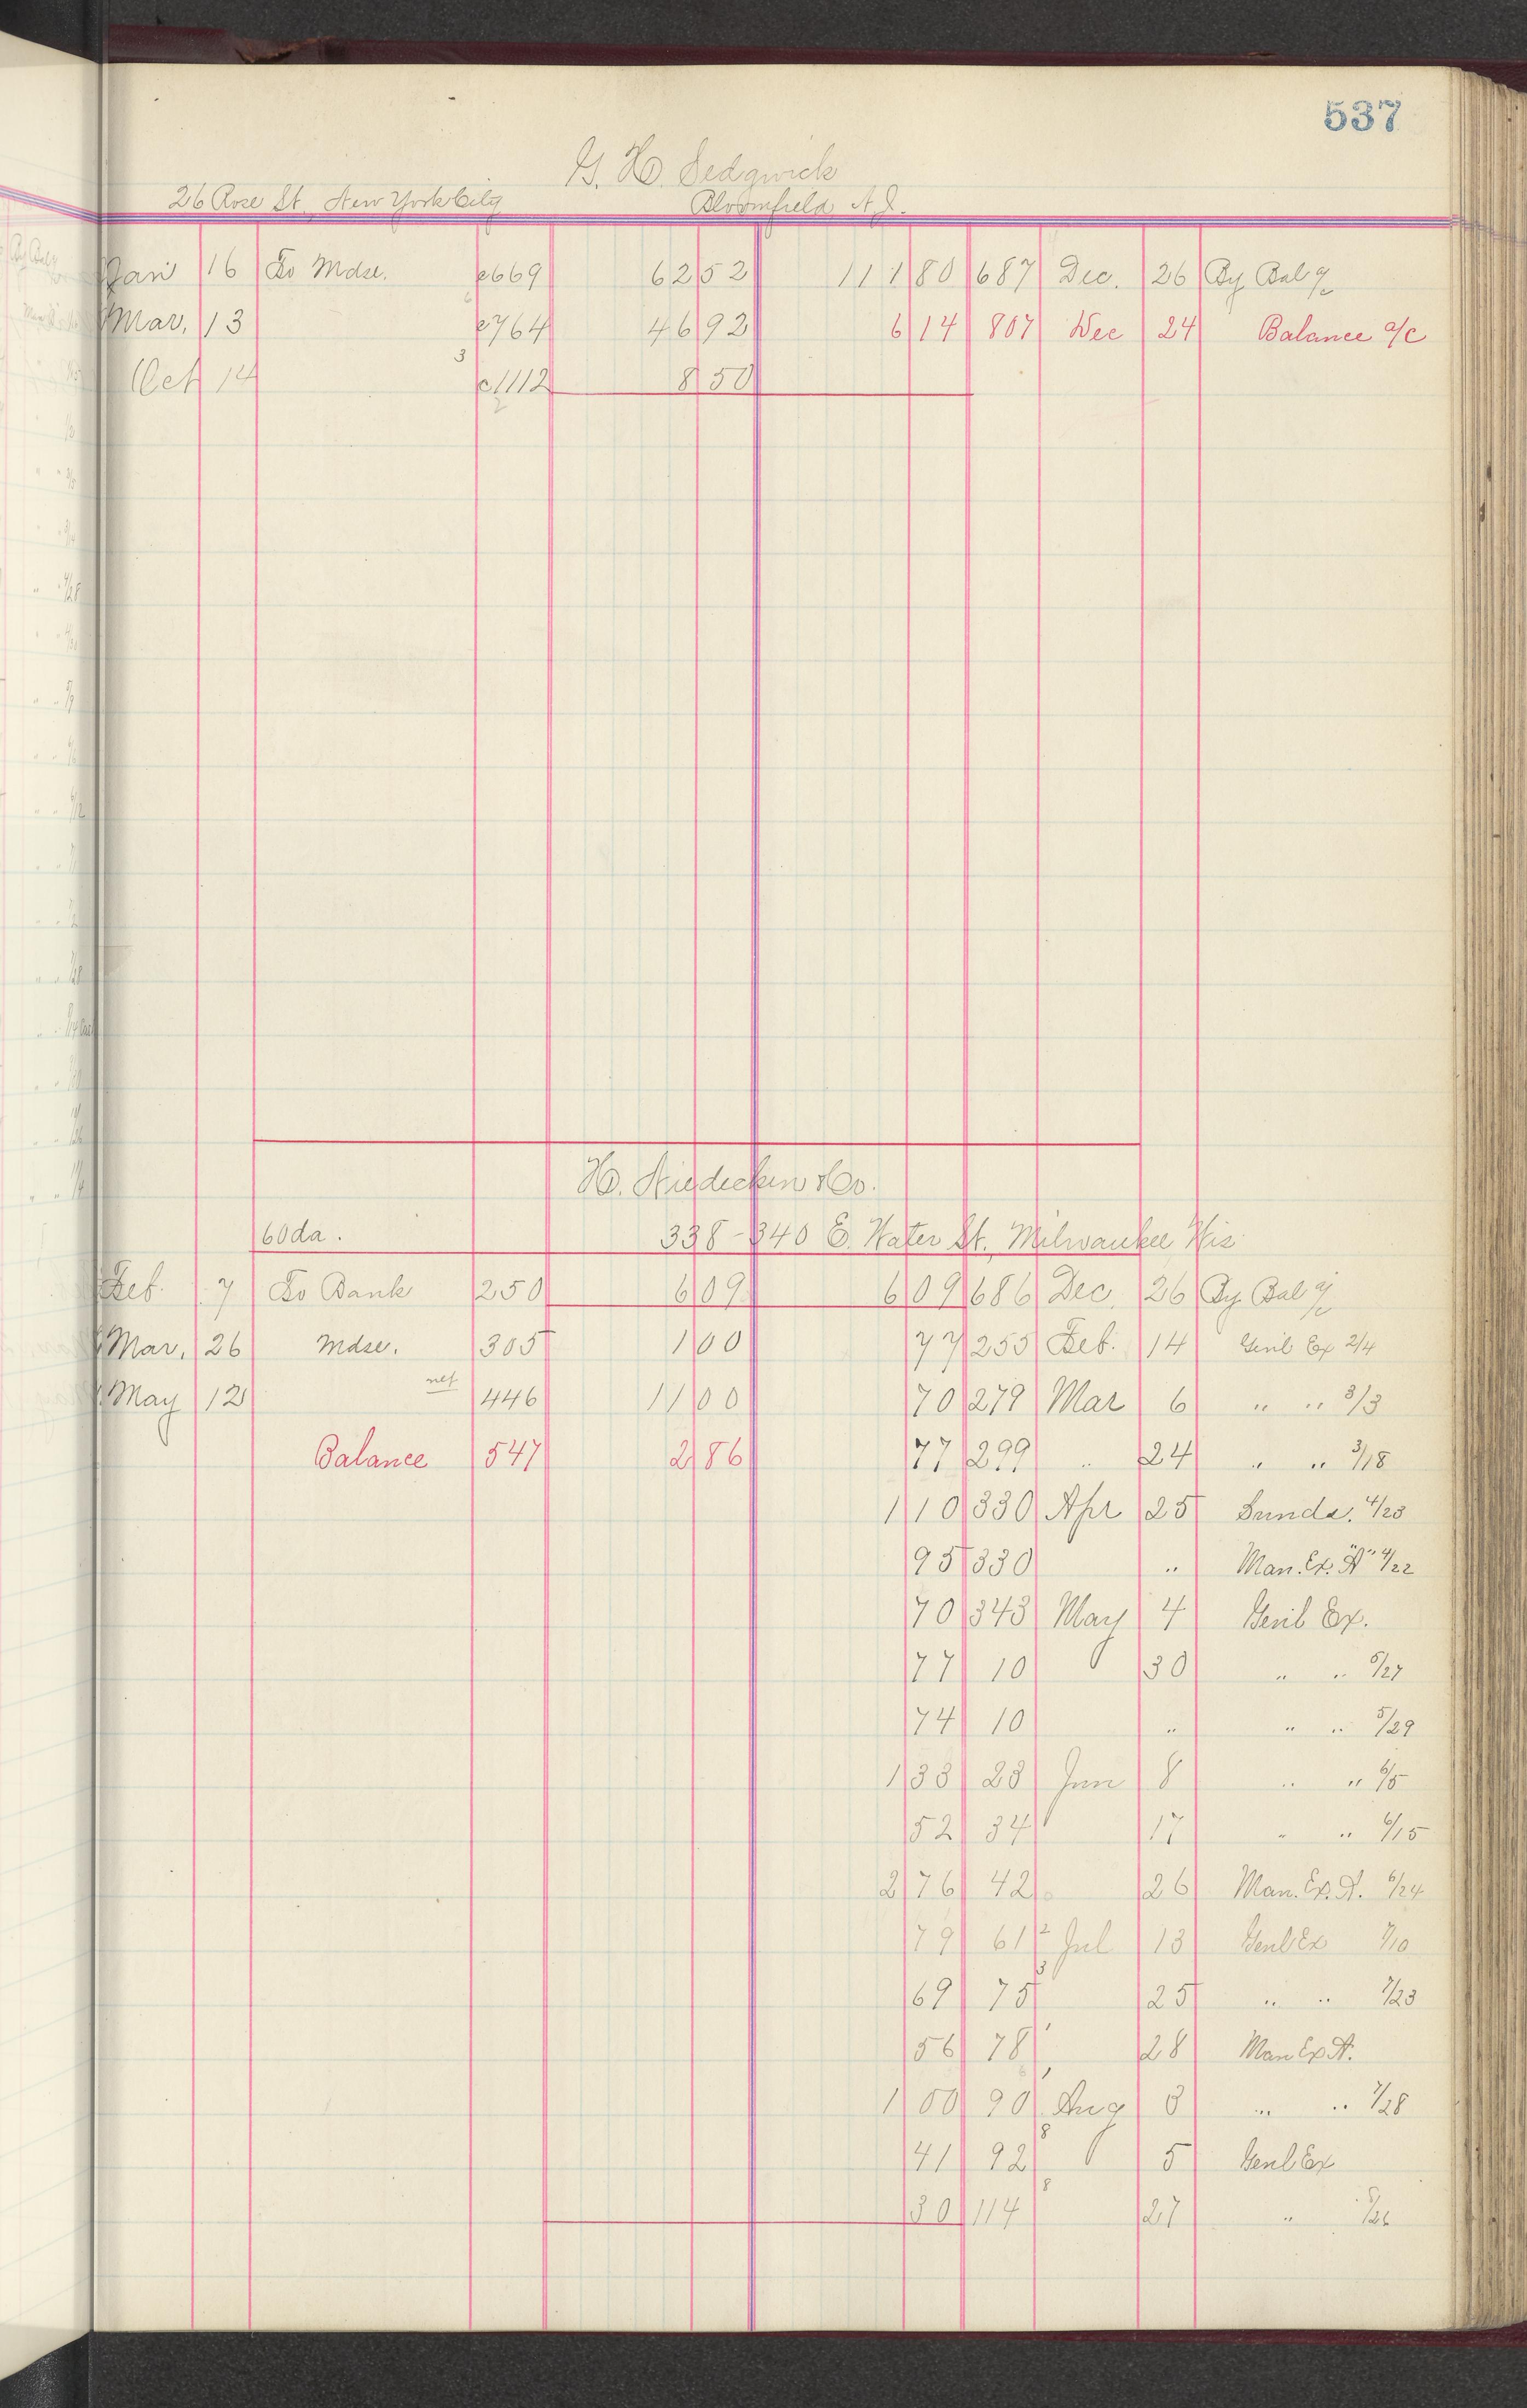 537
G. H. Sedgwick
26 Rose St. New York City Bloomfield N.J.
Jan 16 To Mdse. c669 62 52 111 80 687 Dec. 26 By Bal a/c
Mar. 13 c764 46 92 6 14 807 Dec 24 Balance a/c
Oct 14 3 c1112 8 50
H. Niedecken & Co.
60 da. 338-340 E. Water St. Milwaukee Wis
Feb. 7 To Bank 250 6 09 6 09 686 Dec. 26 By Bal a/c
Mar. 26 Mdse. 305 1 00 77 255 Feb. 14 Genl Ex 2/4
May 12 net 446 11 00 70 279 Mar 6 " " 3/3
Balance 547 2 86 77 299 " 24 " " 3/18
1 10 330 Apr 25 Sunds. 4/23
95 330 " Man. Ex. "A" 4/22
70 343 May 4 Genl Ex.
77 10 30 " " 5/27
74 10 " " " 5/29
1 33 23 Jun 8 " " 6/5
52 34 17 " " 6/15
2 76 42 26 Man. Ex. A. 6/24
79 61 2 Jul 13 Genl Ex 7/10
69 75 3 25 " " 7/23
56 78 28 Man Ex A.
1 00 90 Aug 3 " " 7/28
41 92 8 5 Genl Ex
30 114 8 27 " 8/26